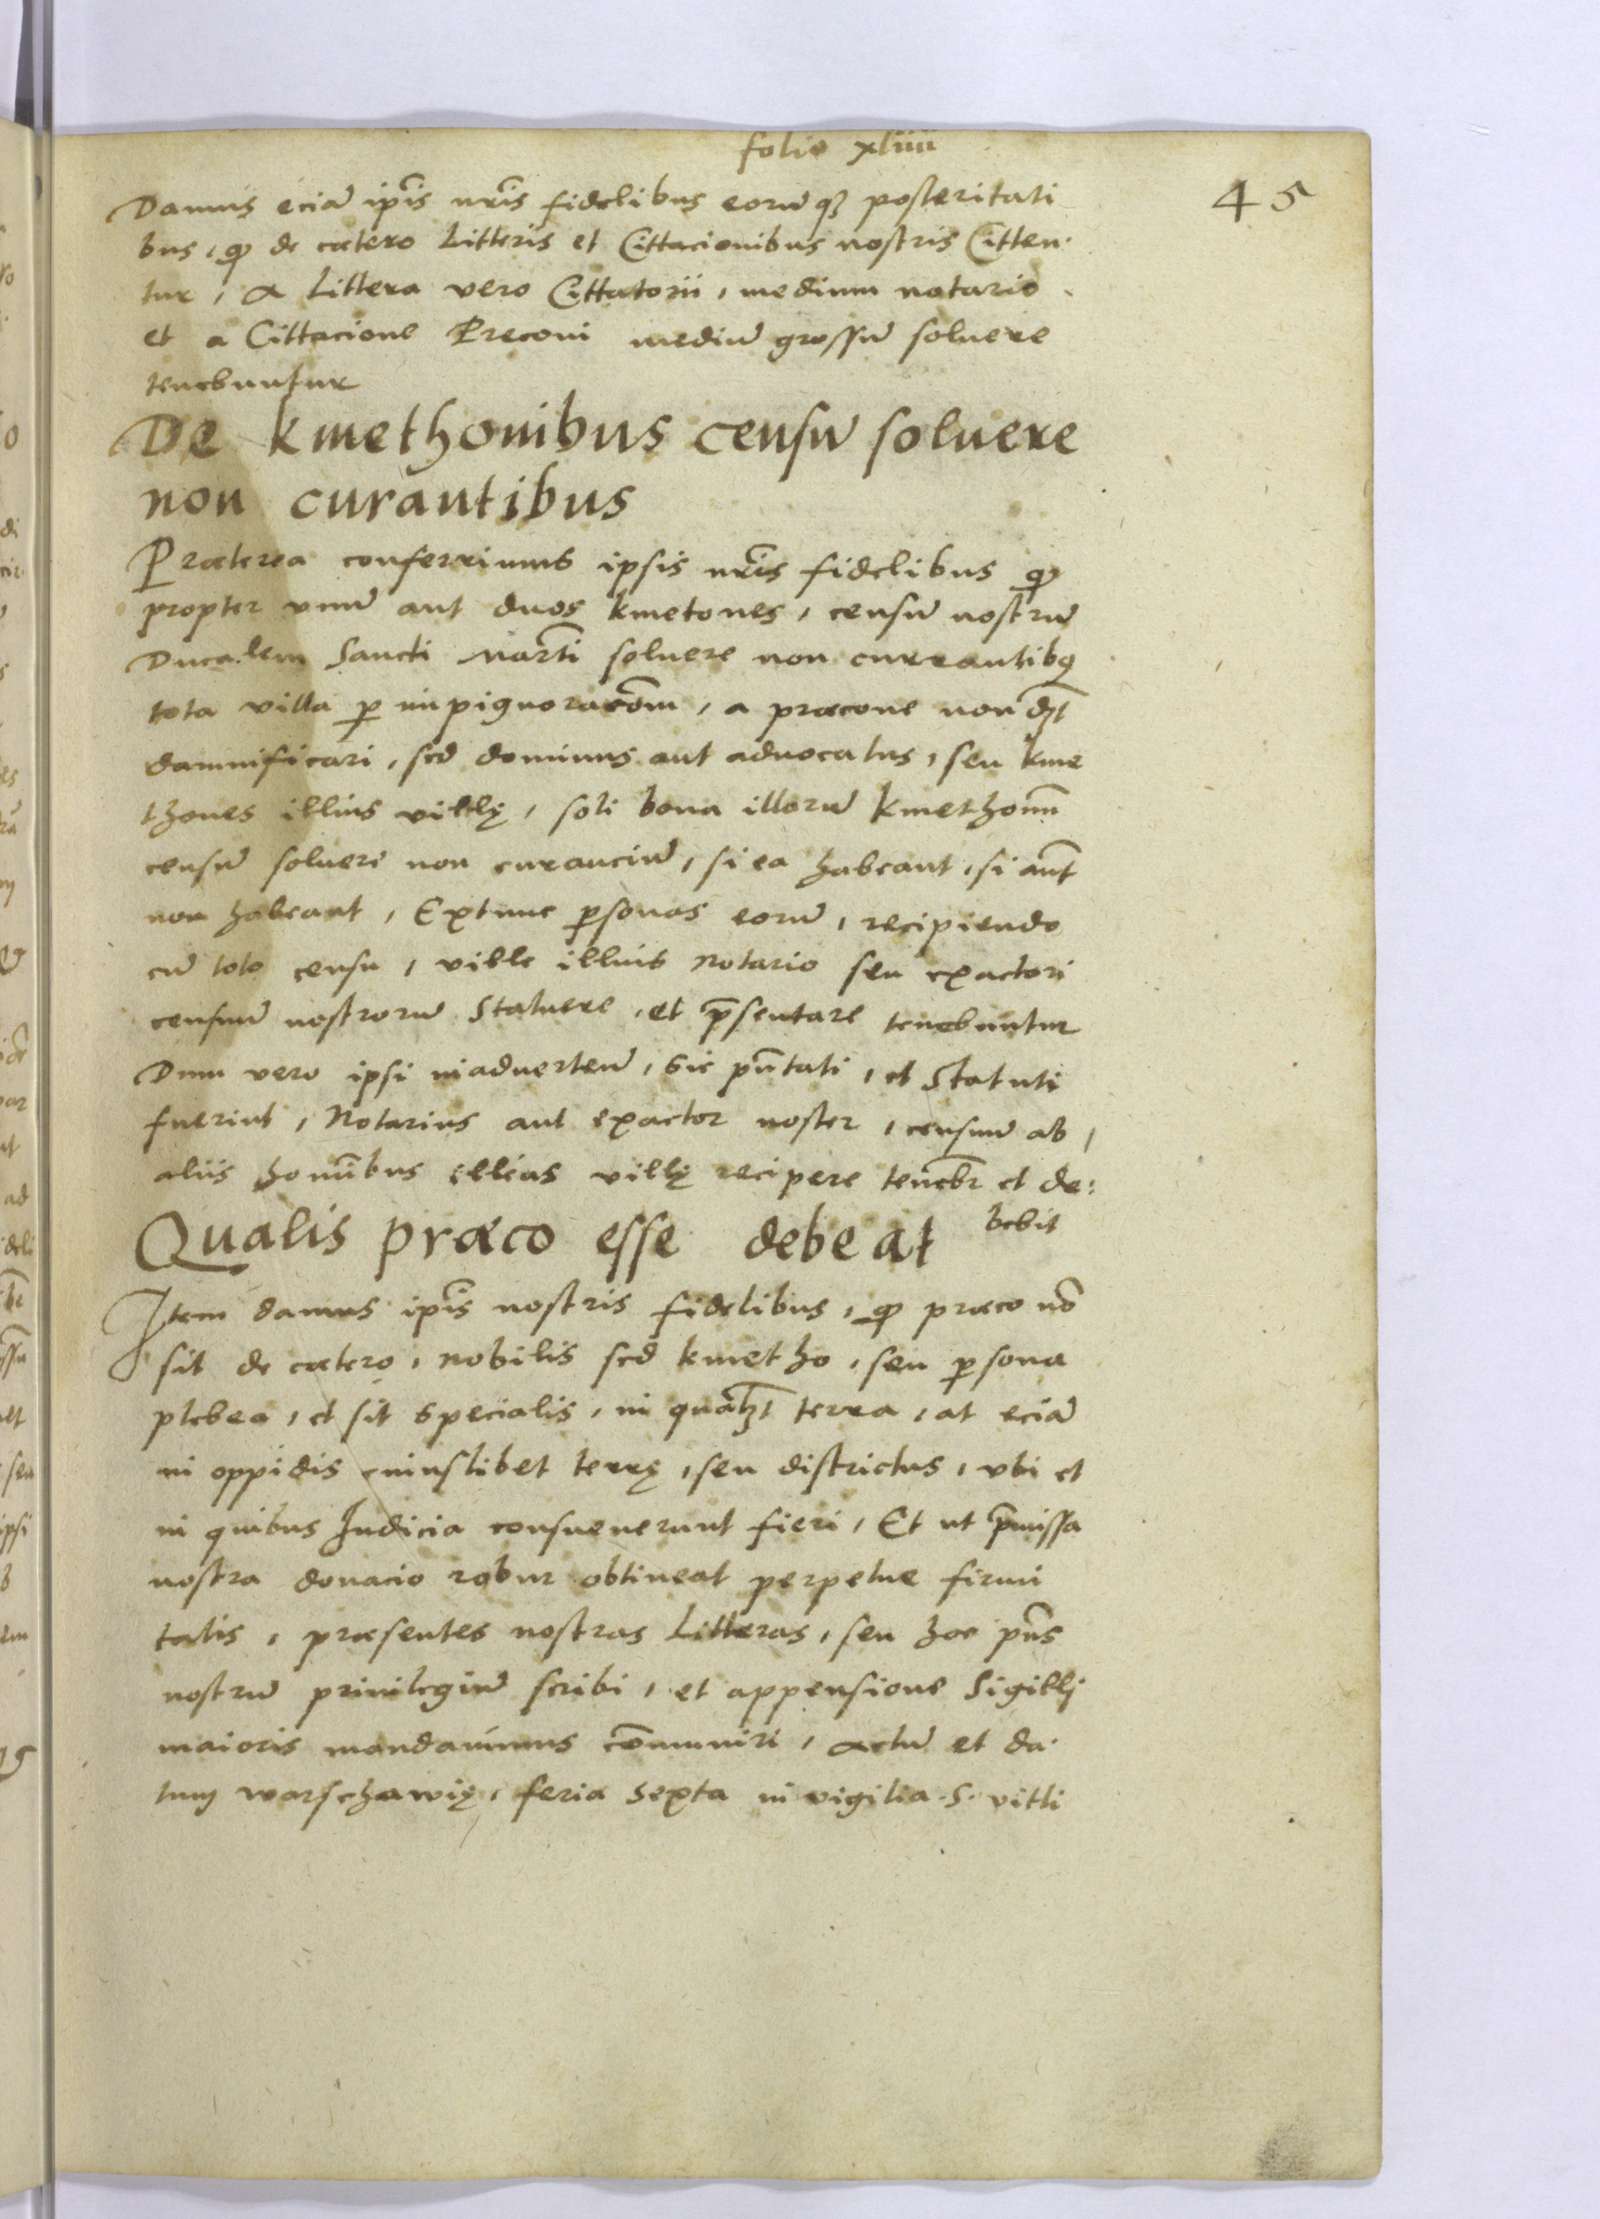 folio xliiii
45
Damus eciã ip̃is nr̃is fidelibus eorũq₃ posteritati
bus, qͥ de cætero Litteris et Cittacionibus nostris Citten·
tur, a Littera vero Cittatorii, medium notario
et a Cittacione Preconi mediũ grossũ soluere
tenebuntur
De kmethonibus censũ soluere
non curantibus
Præterea conferrimus ipsis nr̃is fidelibus qͥ
propter vnũ aut duos kmetones, censũ nostrũ
Ducalem Sancti Marti͂ soluere non currantibꝯ
tota villa ꝑ impignoraco͂m, a præcone non d₃t
damnificari, sed dominus aut aduocatus, seu kme
thones illius villę, soli bona illorũ kmethonũ
censũ soluere non curanciũ, si ea habeant, si aut͂
non habeant, Extunc ꝑsonas eorũ, recipiendo
cũ toto censu, ville illius Notario seu exactori
censuũ nostrorũ Statuere, et p͂sentare tenebuntur
Dum vero ipsi inaduerteñ, sic pñtati, et Statuti
fuerint, Notarius aut exactor noster, censuũ ab,
aliis homĩbus illius villę recipere teneb͂r et de:
bebit
Qualis præco esse debeat
Item damus ip̃is nostris fidelibus, qͥ præco nõ
sit de cætero, nobilis sed kmetho, seu ꝑsona
plebea, et sit specialis, in qual₃t terra, at eciã
in oppidis cuiuslibet terrę, seu districtus, vbi et
in quibus Iudicia consueuerunt fieri, Et ut p͂missa
nostra donacio robur obtineat perpetue firmi
tatis, præsentes nostras Litteras, seu hoc pñs
nostrũ priuilegiũ scribi, et appensione Sigillj
maioris mandauimus cõmuniri, Actũ et da·
tum warschawię, feria sexta in vigilia ·S· vitti